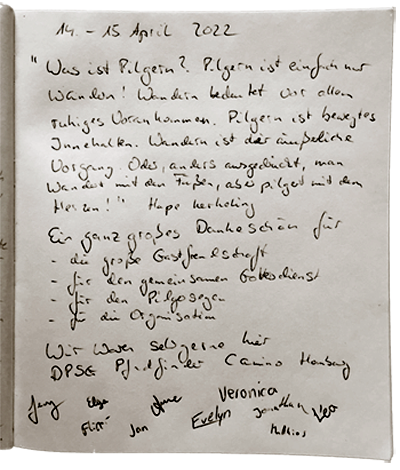 14. - 15 April 2022
"Was ist Pilgern? Pilgern ist einfach nur
Wandern! Wandern bedeutet vor allem
ruhiges Vorankommen. Pilgern ist bewegtes
Innehalten. Wandern ist der äußerliche
Vorgang. Oder, anders ausgedrückt, man
wandert mit den Füßen, aber pilgert mit dem
Herzen!" Hape Kerkeling
Ein ganz großes Dankeschön für
- die große Gastfreundschaft
- für den gemeinsamen Gottesdienst
- für den Pilgersegen
- für die Organisation
Wir waren sehr gerne hier
DPSG Pfadfinder Camino Homburg
Jeny Elga Anne Veronica
Flitti Jan Evelyn Jonathan Leo
Mathias